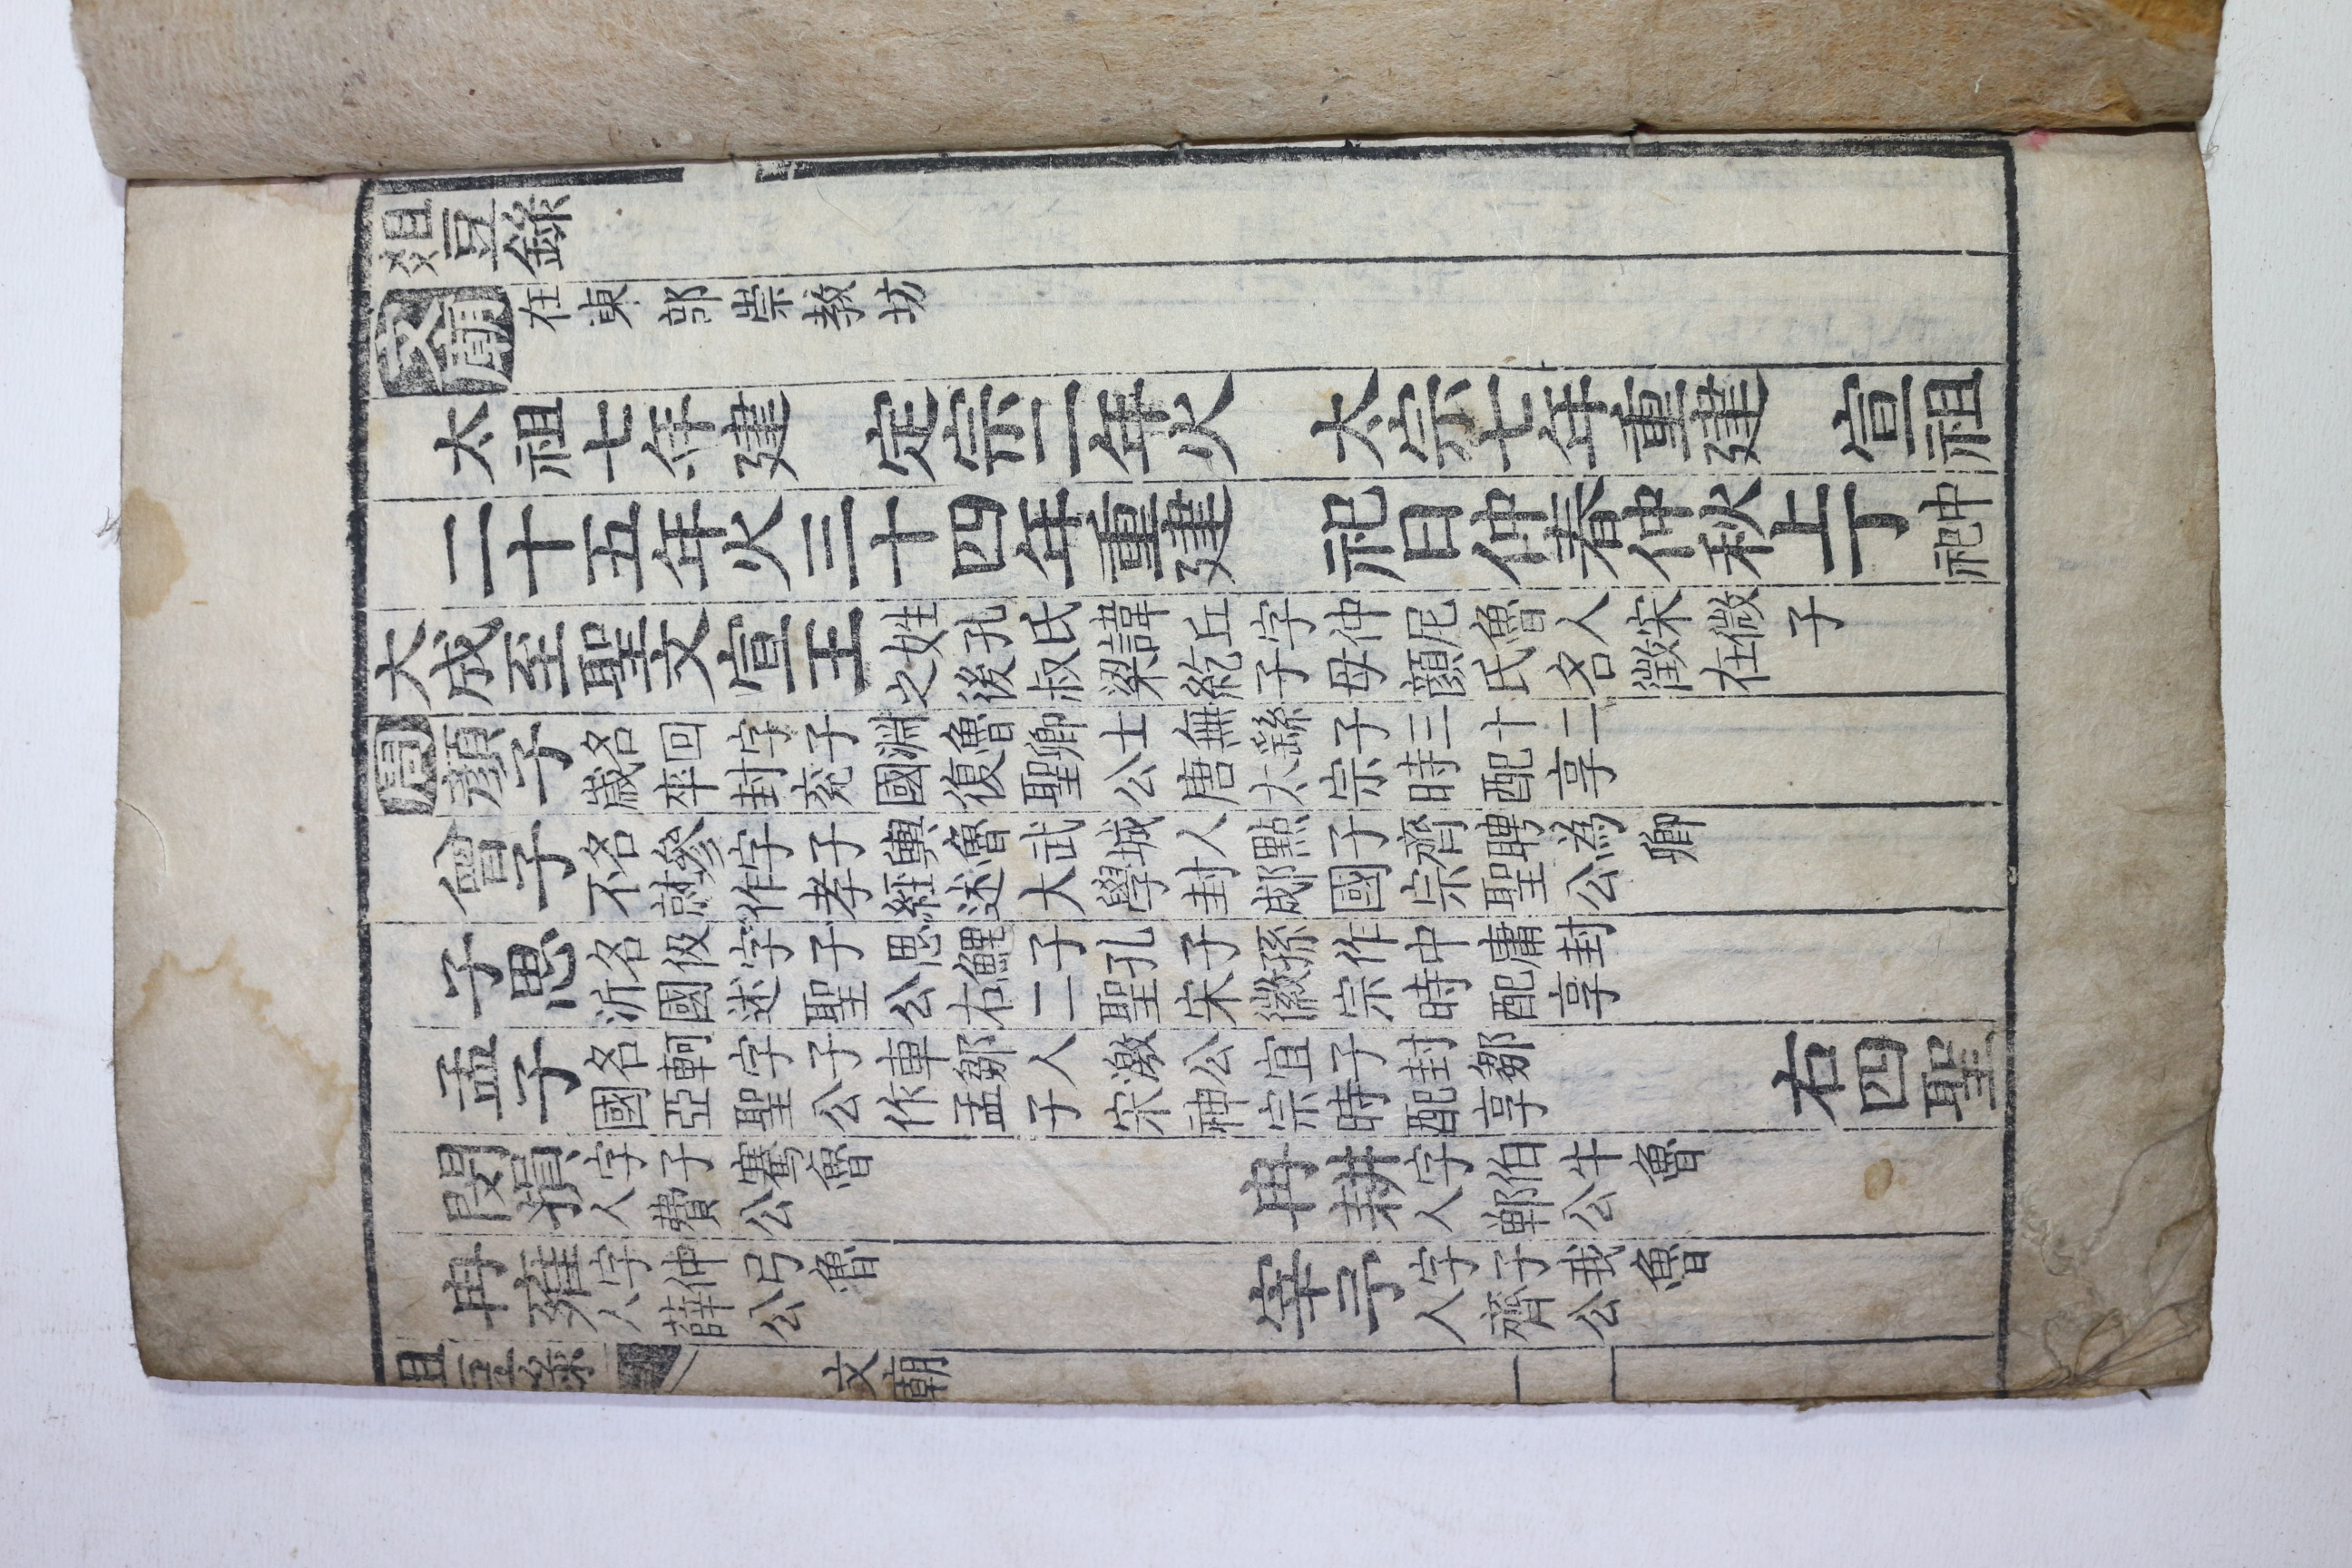 俎豆錄
文廟 在東部崇敎坊
太祖七年建 定宗二年火 太宗七年重建 宣祖
二十五年火三十四年重建 祀日仲春仲秋上丁 中祀
大成至聖文宣王 姓孔氏諱丘字仲尼魯人宋微子之後叔梁紇子母顔氏名徵在
周 顔子 名回字子淵魯卿士無繇子三十二歲卒封兗國復聖公唐太宗時配享
曾子 名參字子輿魯武城人點子齊聘為卿不就作孝經述大學封郕國宗聖公
子思 名伋字子思鯉子孔子孫作中庸封沂國述聖公右二聖宋徽宗時配享
孟子 名軻字子車鄒人激公宜子封鄒國亞聖公作孟子宋神宗時配享 右四聖
閔損 字子騫魯人費公 冉耕 字伯牛魯人鄆公
冉雍 字仲弓魯人薛公 宰予 字子我魯人齊公
俎豆錄 文廟 一